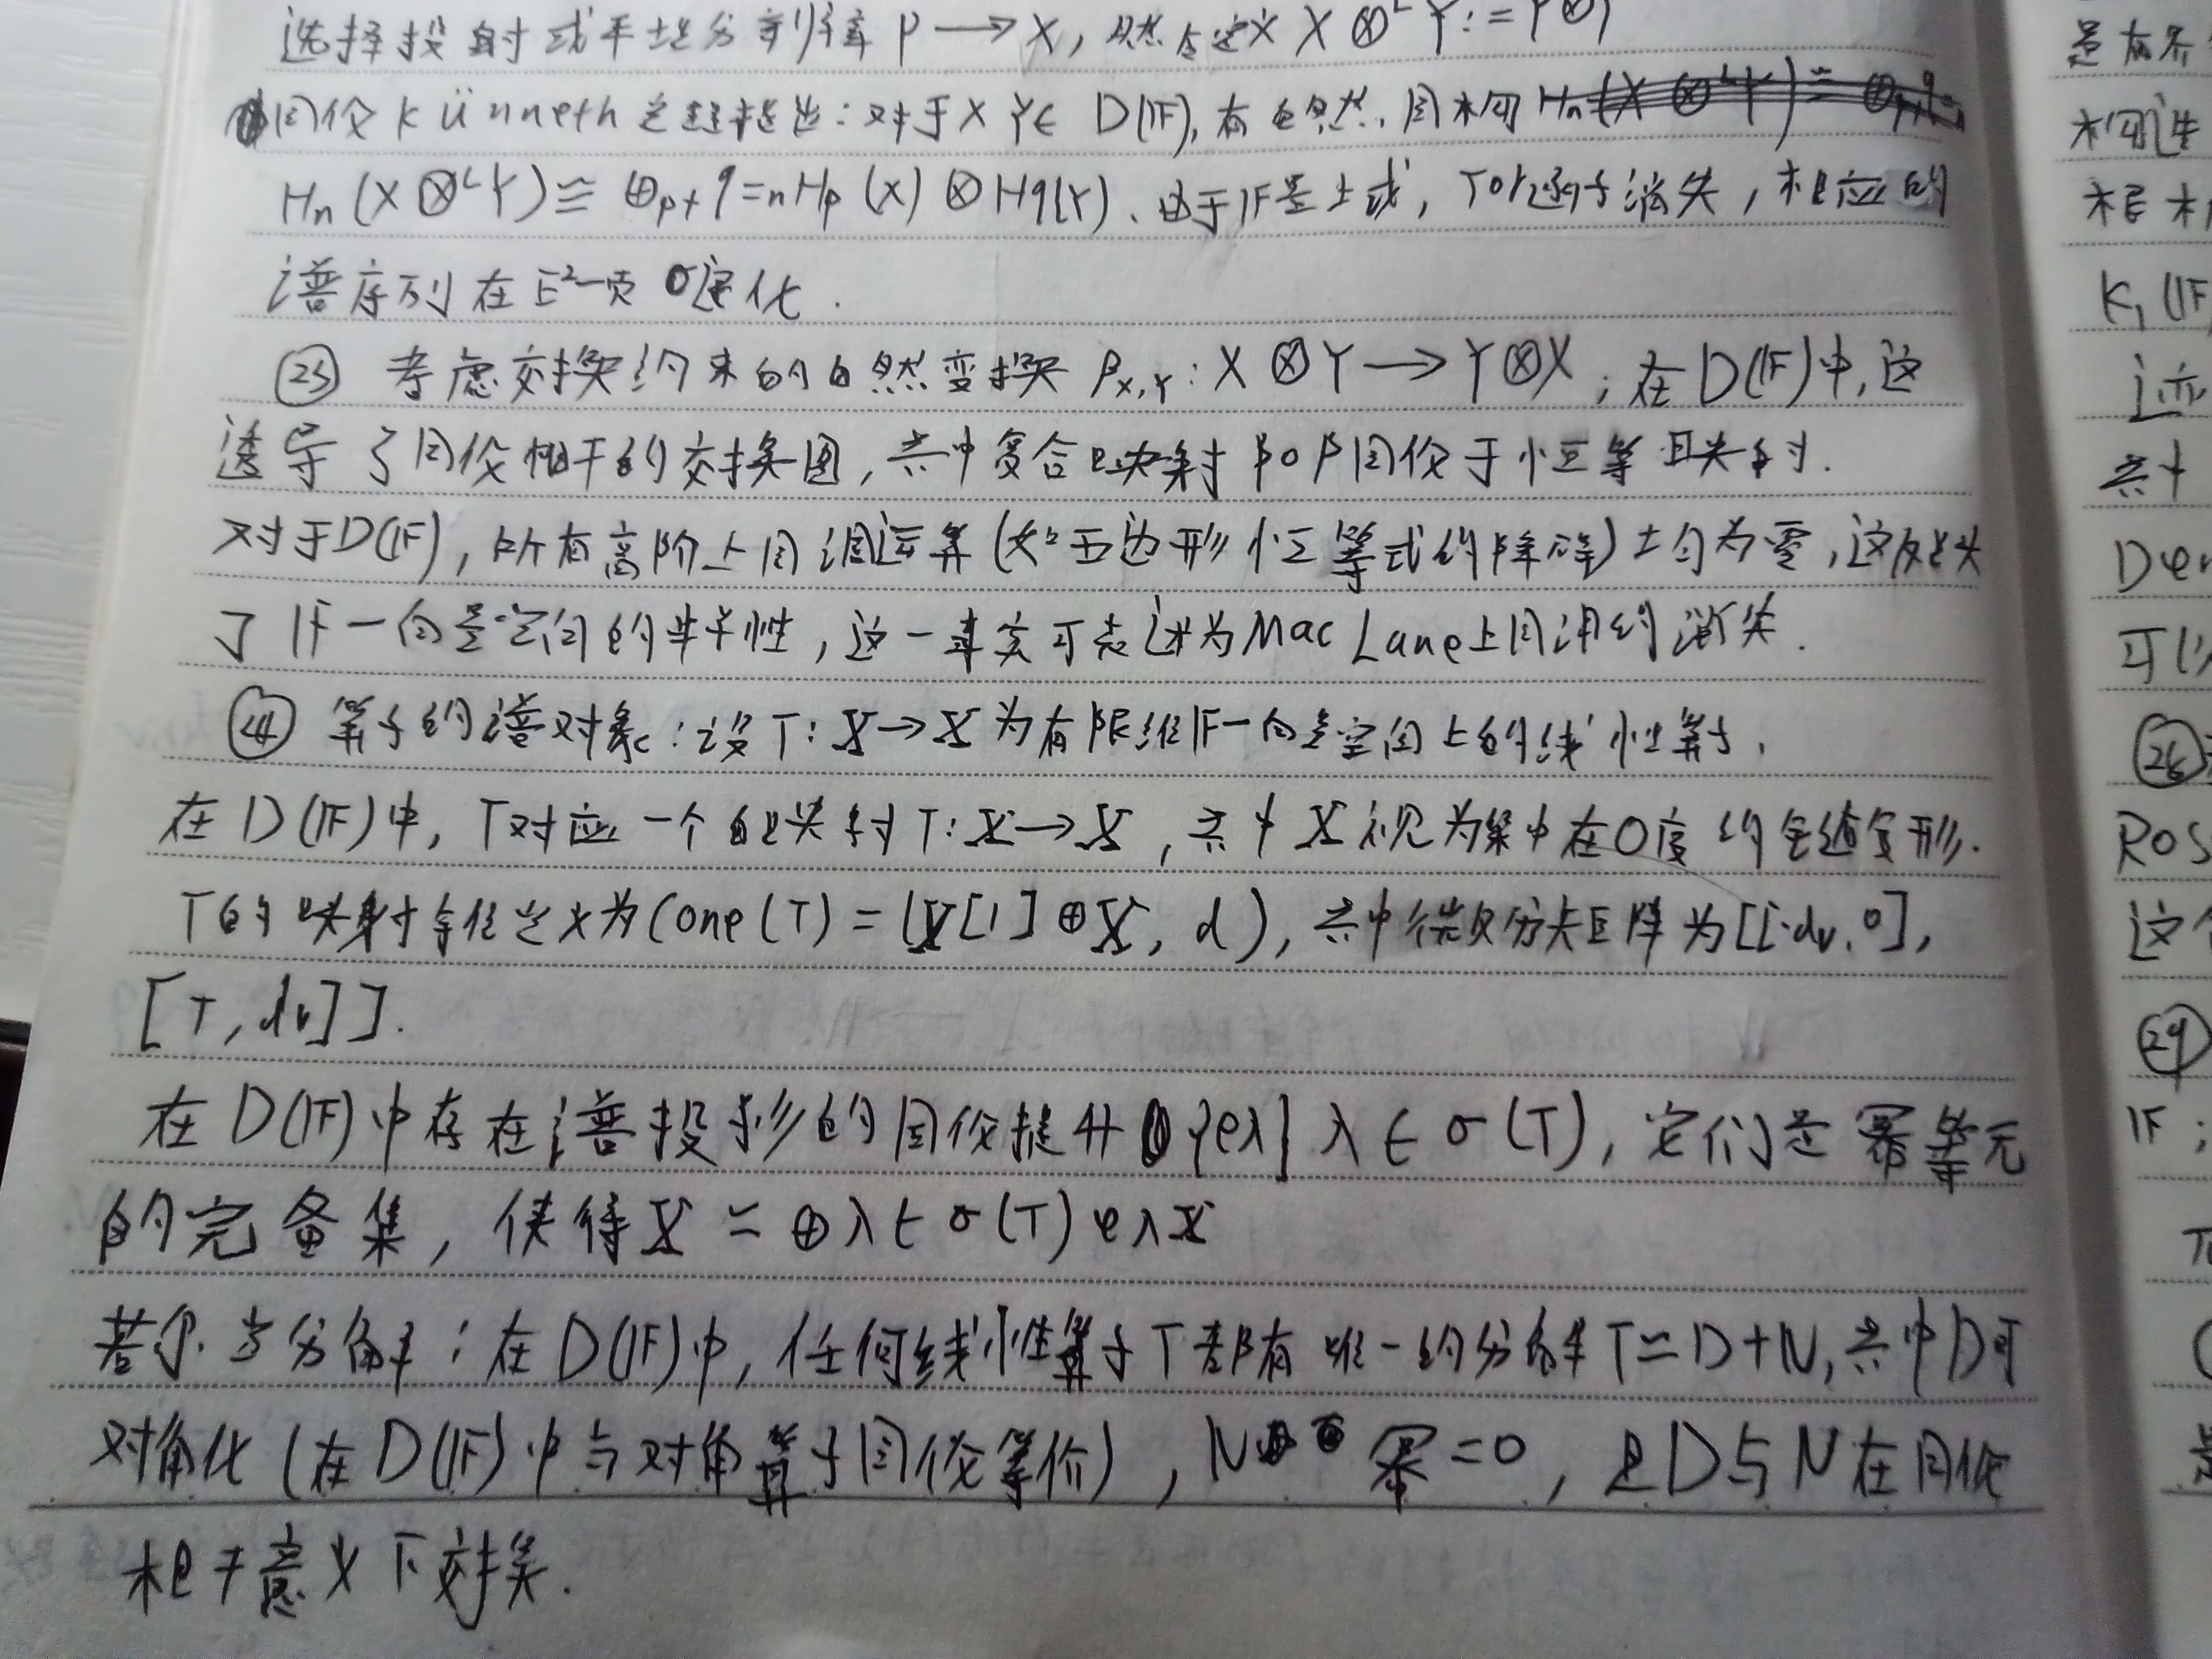 选择投射或平坦分辨率 P → X, 然后定义 X ⊗ᴸ Y := P⊗Y
同伦 Künneth 定理指出：对于X Y∈ D(𝔽), 有自然同构
Hn(X⊗ᴸY) ≅ ⊕p+q=n Hp(X) ⊗ Hq(Y). 由于𝔽是域, Tor函子消失, 相应的
谱序列在E²-页退化.
㉓ 考虑交换约束的自然变换 βX,Y : X⊗Y → Y⊗X ; 在D(𝔽)中, 这
诱导了同伦相干的交换图, 其中复合映射 β∘β同伦于恒等映射.
对于D(𝔽), 所有高阶上同调运算(如五边形恒等式的障碍)均为零, 这反映
了𝔽-向量空间的半单性, 这一事实可表述为Mac Lane上同调的消失.
㉔ 算子的谱对象：设T: X→X为有限维𝔽-向量空间上的线性算子,
在D(𝔽)中, T对应一个自映射T: X→X, 其中X视为集中在0度的链复形.
T的映射锥定义为Cone(T) = (X[1]⊕X, d), 其中微分矩阵为[[-dv, 0],
[T, dv]].
在D(𝔽)中存在谱投影的同伦提升{eλ}λ∈σ(T), 它们是幂等元
的完备集, 使得X ≃ ⊕λ∈σ(T) eλX
若尔当分解：在D(𝔽)中, 任何线性算子T都有唯一的分解T≃D+N, 其中D可
对角化(在D(𝔽)中与对角算子同伦等价), N幂=0, 且D与N在同伦
相干意义下交换.
是有界
根
K₁(𝔽
这
其中
Der
可以
㉖
Ros
这个
㉙
𝔽;